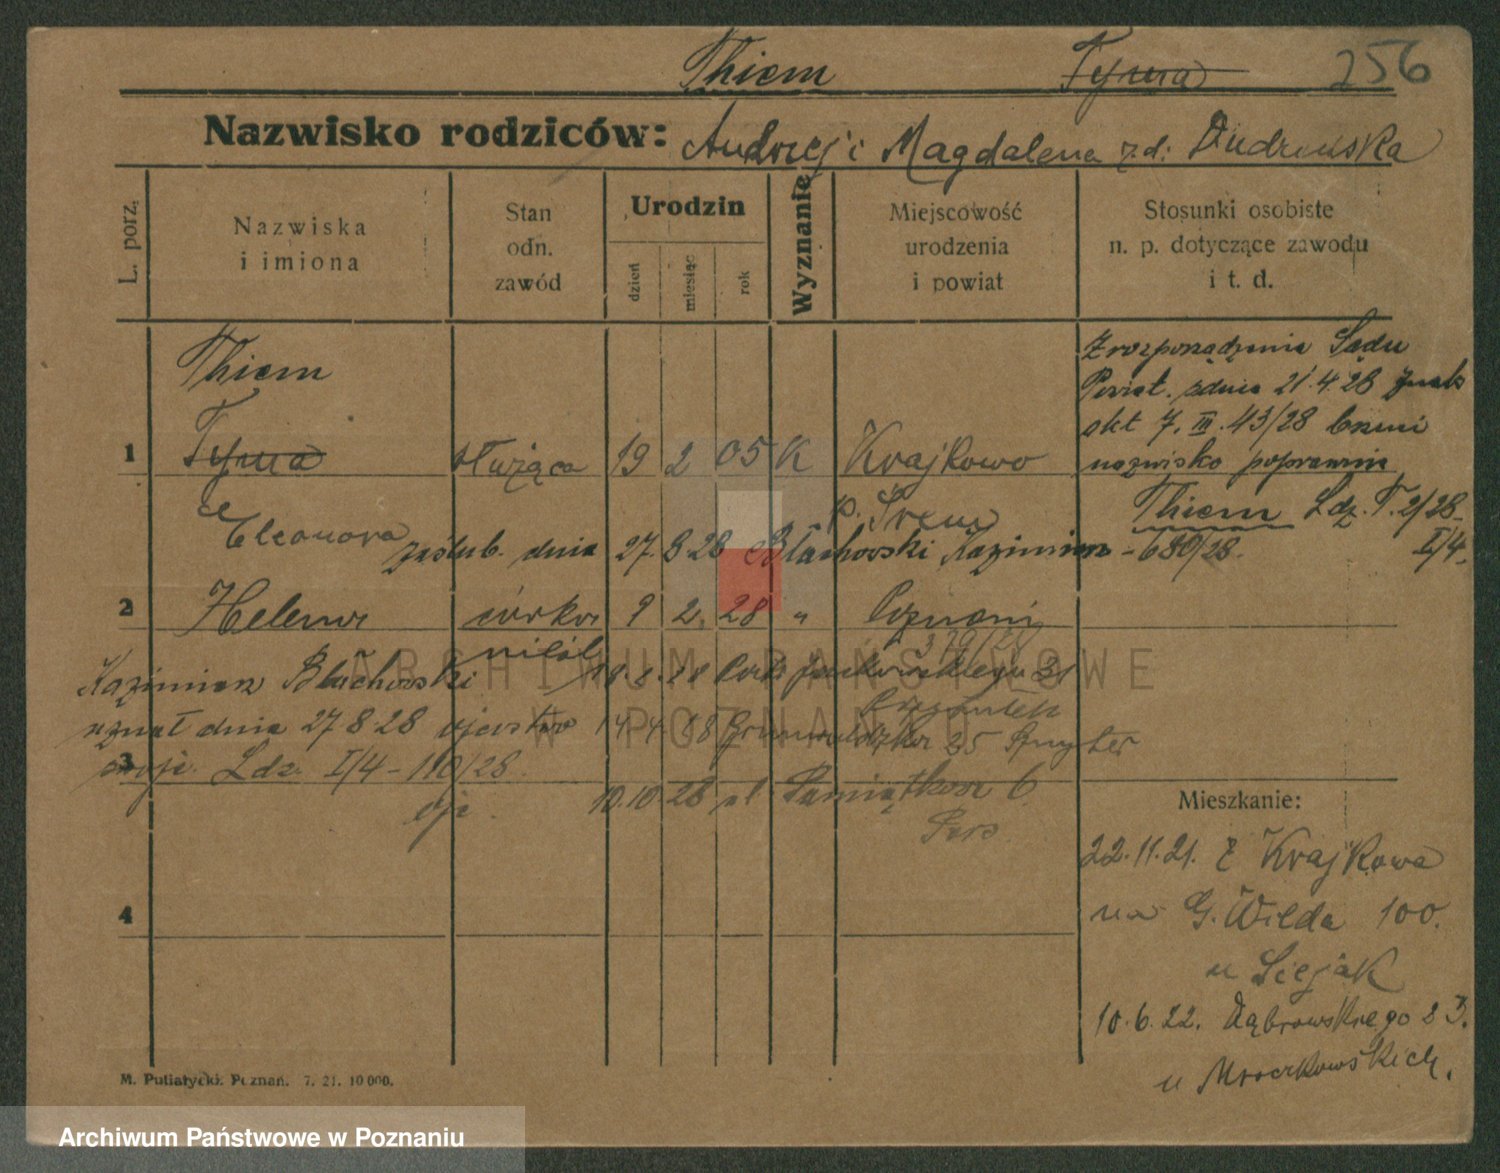 Thiem Tyma 256
Nazwisko rodziców: Andrzej i Magdalena z d:
L. porz.
Nazwiska
i imiona
Stan
odn.
zawód
Urodzin
dzień
miesiąc
rok
Wyznanie
Miejscowość
urodzenia
i powiat
Stosunki osobiste
n. p. dotyczące zawodu
i t. d.
Thiem
1 Tyma służąca 19 2 05 K Krajkowo
p. Śrem
Eleonora
Z rozporządzenia Sądu
Powiat. z dnia 21.4.28 Znak
akt 7. III. 43/28 brzmi
nazwisko poprawnie
Thiem Ldz. T. 2/28
680/28. I/4.
zaślub. dnia 27.8.28 Błachowski Kazimierz
2 Helena córka 9 2. 28 " Poznań
nieśl
Kazimierz Błachowski
uznał dnia 27 8 28 ojcostwo
swoje. Ldz. I/4 - 110/28
14.4.88 35
3
10.10 28 6
Mieszkanie:
22.11.21. z Krajkowa
na G. Wilda 100.
u
10.6.22. Dąbrowskiego 23.
u Mroczkowskich.
4
M. Putiatycki. Poznań. 7. 21. 10 000.
ARCHIWUM PAŃSTWOWE
W POZNANIU
Archiwum Państwowe w Poznaniu